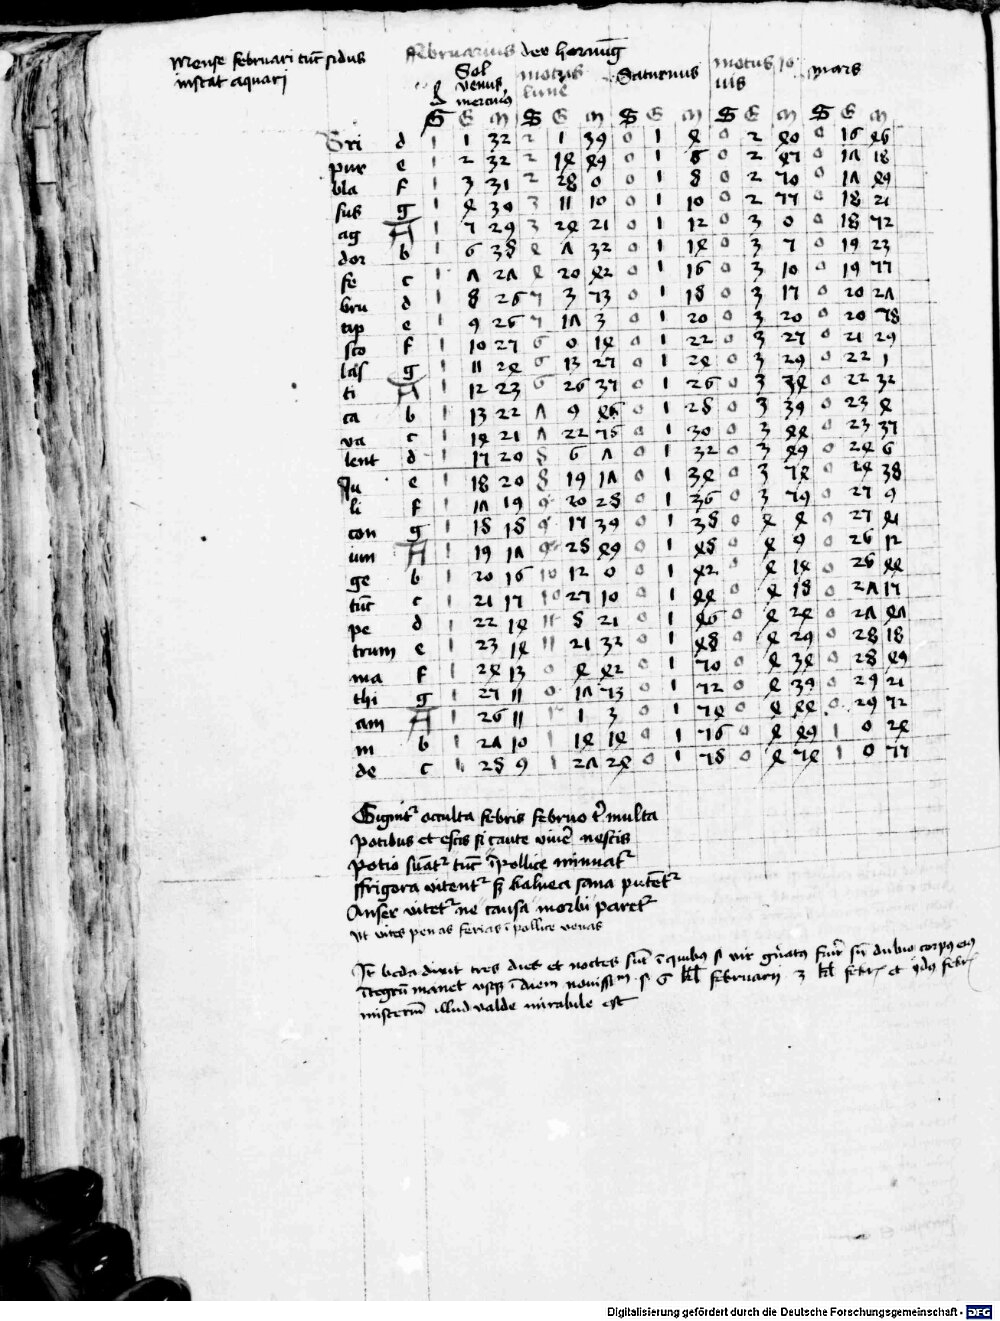 Mense februari tūc sidus
instat aquarj
ffebruarius der hornūg
Sol venus mercuris motus lune Saturnus motus Jouis mars
S G M S G M S G M S G M S G M
Bri d 1 1 32 2 1 39 0 1 4 0 2 40 0 16 46
pur e 1 2 32 2 14 49 0 1 6 0 2 45 0 17 18
bla f 1 3 31 2 28 0 0 1 8 0 2 50 0 17 49
sus g 1 4 30 3 11 10 0 1 10 0 2 55 0 18 21
ag A 1 5 29 3 24 21 0 1 12 0 3 0 0 18 52
dor b 1 6 38 4 7 32 0 1 14 0 3 5 0 19 23
fe c 1 7 27 4 20 42 0 1 16 0 3 10 0 19 55
bru d 1 8 26 5 3 53 0 1 18 0 3 15 0 20 27
tip e 1 9 26 5 17 3 0 1 20 0 3 20 0 20 58
sco f 1 10 25 6 0 14 0 1 22 0 3 25 0 21 29
las g 1 11 24 6 13 25 0 1 24 0 3 29 0 22 1
ti A 1 12 23 6 26 35 0 1 26 0 3 34 0 22 32
ca b 1 13 22 7 9 46 0 1 28 0 3 39 0 23 4
va c 1 14 21 7 22 56 0 1 30 0 3 44 0 23 35
lent d 1 15 20 8 6 7 0 1 32 0 3 49 0 24 6
Ju e 1 18 20 8 19 17 0 1 34 0 3 54 0 24 38
li f 1 17 19 9 20 28 0 1 36 0 3 59 0 25 9
con g 1 18 18 9 15 39 0 1 38 0 4 4 0 25 41
iun A 1 19 17 9 28 49 0 1 48 0 4 9 0 26 12
ge b 1 20 16 10 12 0 0 1 42 0 4 14 0 26 44
tūc c 1 21 15 10 25 10 0 1 44 0 4 18 0 27 15
pe d 1 22 14 11 8 21 0 1 46 0 4 24 0 27 47
trum e 1 23 14 11 21 32 0 1 48 0 4 29 0 28 18
ma f 1 24 13 0 4 42 0 1 50 0 4 34 0 28 49
thi g 1 25 11 0 17 53 0 1 52 0 4 39 0 29 21
am A 1 26 11 1 1 3 0 1 54 0 4 44 0 29 52
in b 1 27 10 1 14 14 0 1 56 0 4 49 1 0 24
de c 1 28 9 1 27 24 0 1 58 0 4 54 1 0 55
Gignitᷣ occulta febris februo multa
Potibus et escis si caute viuē nescis
Potio sūatᷣ tūc ī pollice minuatᷣ
ffrigora vitentᷣ balnea sana putētᷣ
Anser vitetᷣ ne causa morbi paretᷣ
ferias ī pollice venas
Jt beda dixit tres dies et noctes sūt ī quibus si vir fuīt sn̄ dubio corpus eius
ītegrū manet vsqꝫ ī diem nouissim s 6 kl februarij 3 kl febr et ydus febr
misteriū illud valde mirabile est
Digitalisierung gefördert durch die Deutsche Forschungsgemeinschaft - DFG